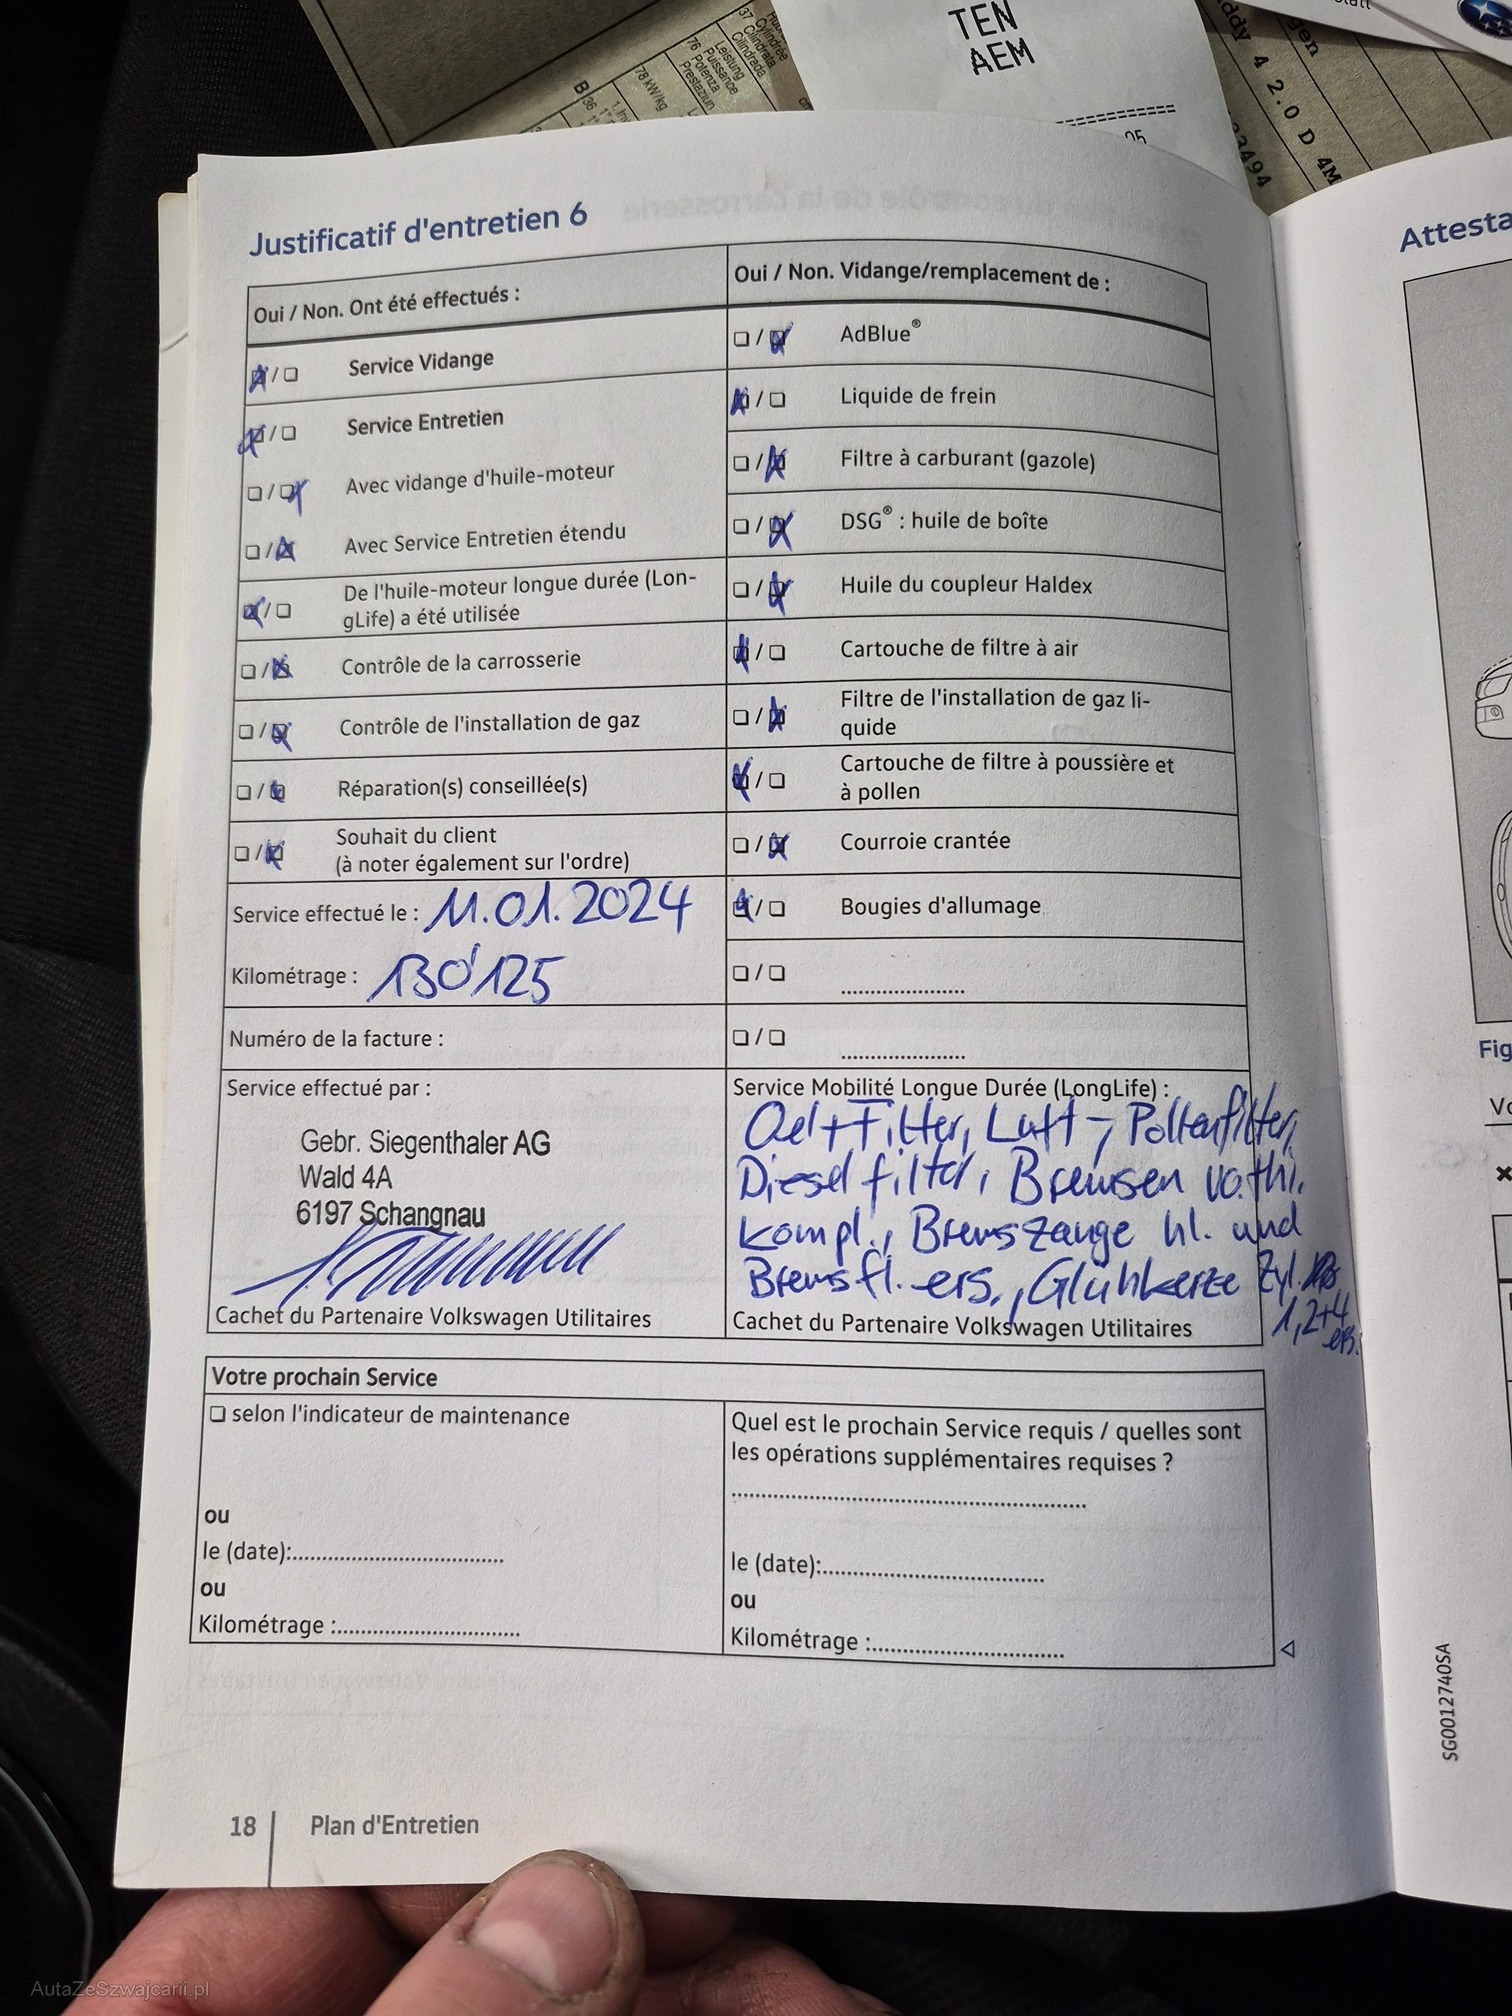 TEN
AEM
Justificatif d'entretien 6
Oui / Non. Ont été effectués :
Service Vidange
Service Entretien
Avec vidange d'huile-moteur
Avec Service Entretien étendu
De l'huile-moteur longue durée (Lon-
gLife) a été utilisée
Contrôle de la carrosserie
Contrôle de l'installation de gaz
Réparation(s) conseillée(s)
Souhait du client
(à noter également sur l'ordre)
Service effectué le : 11.01.2024
Kilométrage : 130'125
Numéro de la facture :
Service effectué par :
Gebr. Siegenthaler AG
Wald 4A
6197 Schangnau
Cachet du Partenaire Volkswagen Utilitaires
Oui / Non. Vidange/remplacement de :
AdBlue®
Liquide de frein
Filtre à carburant (gazole)
DSG® : huile de boîte
Huile du coupleur Haldex
Cartouche de filtre à air
Filtre de l'installation de gaz li-
quide
Cartouche de filtre à poussière et
à pollen
Courroie crantée
Bougies d'allumage
Service Mobilité Longue Durée (LongLife) :
Oel + Filter, Luft-, Pollenfilter,
Dieselfilter, Bremsen vo.+hi.
kompl., Bremszange hl. und
Bremsfl. ers., Glühkerze Zyl.
1,2+4
ers.
Cachet du Partenaire Volkswagen Utilitaires
Votre prochain Service
selon l'indicateur de maintenance
ou
le (date):
ou
Kilométrage :
Quel est le prochain Service requis / quelles sont
les opérations supplémentaires requises ?
le (date):
ou
Kilométrage :
18 Plan d'Entretien
Attesta
Fig
SG0012740SA
37 Cylindrée
Cilindrata
Cilindrada
76 Leistung
Puissance
Potenza
Prestaziun
78 kW/kg
B
36
05
ddy 4 2.0 D 4M
gen
3494
AutaZeSzwajcarii.pl